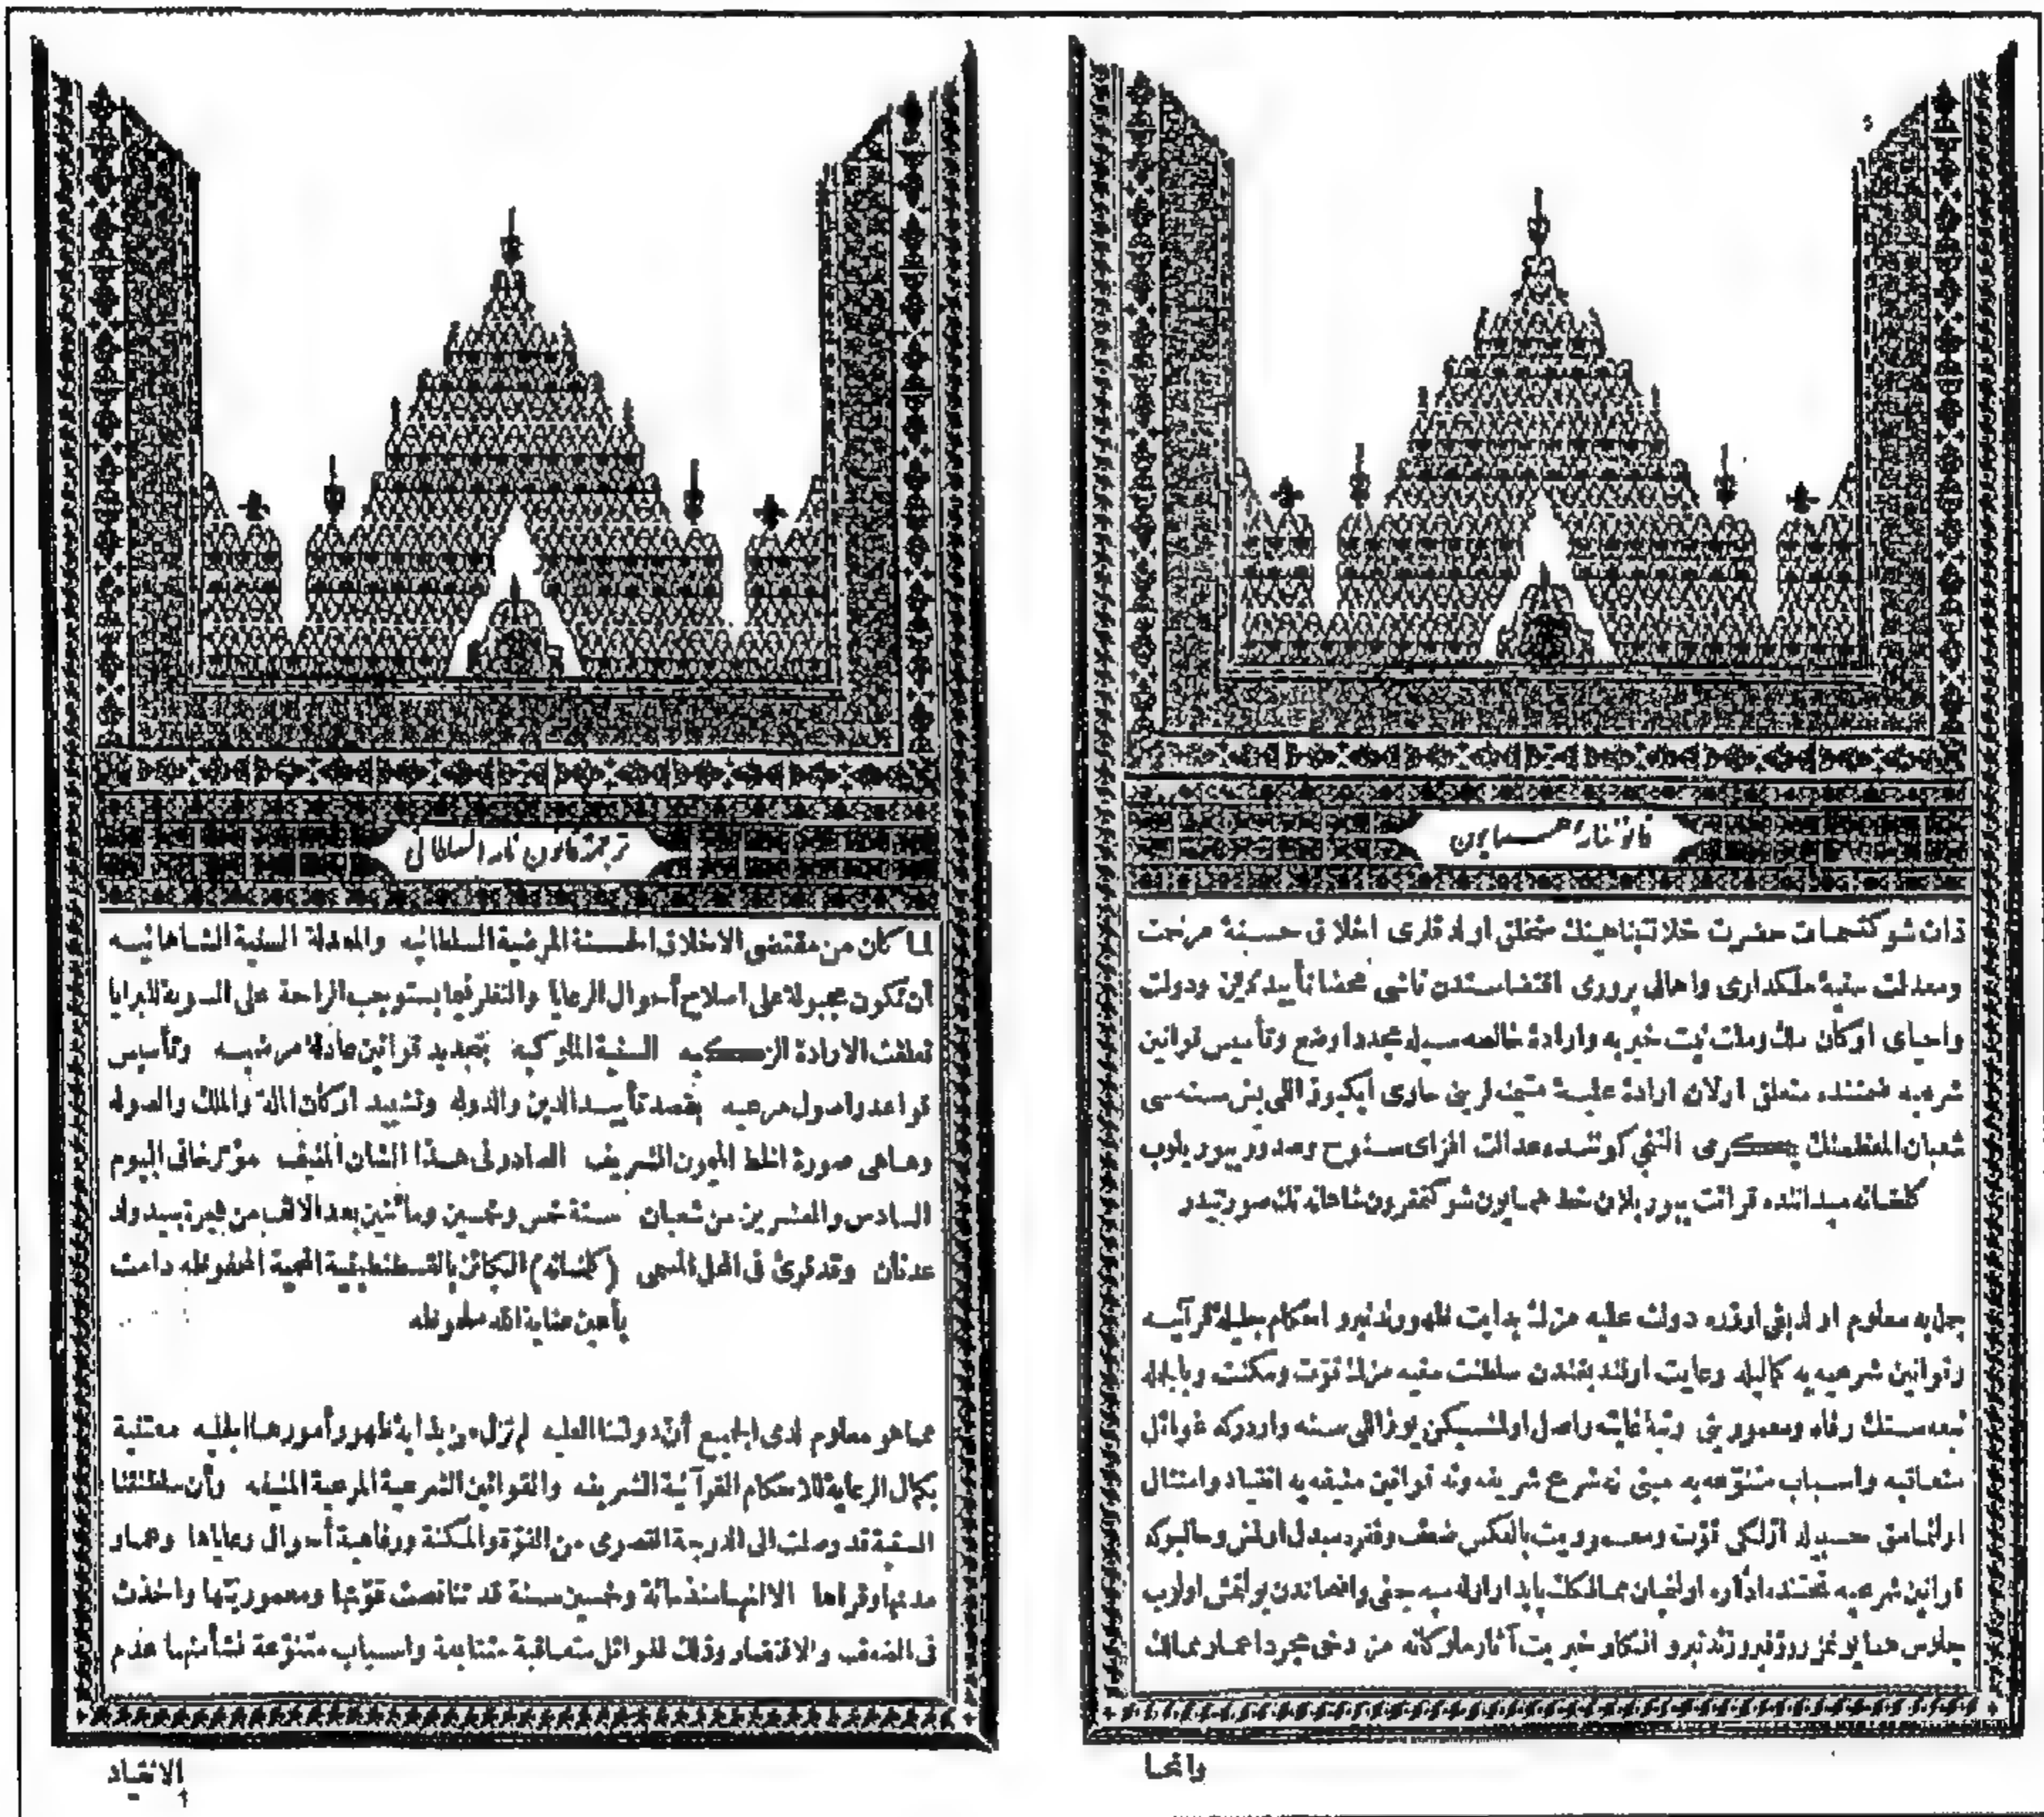 قانوننامهٔ همـــايون
ذات شوكتسمات حضرت خلافتپناهينك متخلق اولدقلری اخلاق حسنهٔ مرحمت
ومعدلت سنيهٔ ملكداری واهالی پروری اقتضاسندن ناشی محضا تأييد دين ودولت
واحيای اركان ملك وملت نيت خيريه وارادهٔ خالصه سيله مجددا وضع وتأسيس قوانين
شرعيه ضمننده متعلق اولان ارادهٔ عليهٔ متيمنه لرينی حاوی ايكيوز اللی بش سنه سی
شعبان المعظمنك يكرمی التنجی كوننده عدالت افزای سنوح وصدور بيوريلوب
كلخانه ميداننده قرائت بيوريلان خط همايون شوكتمقرون شاهانه نك صورتيدر
جمله يه معلوم اولديغی اوزره دولت عليه مزك بدايت ظهورندنبرو احكام جليلهٔ قرآنيه
وقوانين شرعيه يه كماليله رعايت اولنديغندن سلطنت سنيه مزك قوت ومكنت وبالجمله
تبعه سنك رفاه ومعموريتی رتبهٔ غايته واصل اولمشيكن يوز اللی سنه واردركه غوائل
متعاقبه واسباب متنوعه يه مبنی نه شرع شريفه ونه قوانين منيفه يه انقياد وامتثال
اولنمامق حسبيله اولكی قوت ومعموريت بالعكس ضعف وفقره مبدل اولمش وحالبوكه
قوانين شرعيه تحتنده اداره اولنميان ممالكك پايدار اوله ميه جغی واضحاتدن بولنمش اولوب
جلوس همايونمز روز فيروزندنبرو افكار خيريت آثار ملوكانه مز دخی مجرد اعمار ممالك
وانحا
ترجمة قانون نامه السلطانی
لما كان من مقتضى الاخلاق الحسنة المرضية السلطانيه والمعدلة السنية الشاهانيه
أن تكون مجبولة على اصلاح أحوال الرعايا والنظر فيما يستوجب الراحة على السوية للبرايا
تعلقت الارادة الزكيه السنية الملوكيه بتجديد قوانين عادلة مرضيه وتأسيس
قواعد واصول مرعيه بقصد تأييد الدين والدوله وتشييد اركان المله والملك والصوله
وهاهى صورة الخط الميمون الشريف الصادر فى هذا الشان المنيف مؤرخا فى اليوم
السادس والعشرين من شعبان سنة خمس وخمسين ومأتين بعد الالف من هجرة سيد ولد
عدنان وقد قرئ فى المحل المسمى (كلخانه) الكائن بالقسطنطينية المحمية المحفوظه دامت
بأعين عناية الله ملحوظه
مما هو معلوم لدى الجميع أن دولتنا العليه لم تزل من بداية ظهور أمورها الجليه معتنية
بكمال الرعاية للاحكام القرآنية الشريفه والقوانين الشرعية المرعية المنيفه وأن سلطنتنا
السنية قد وصلت الى الدرجة القصوى من القوة والمكنة ورفاهية أحوال رعاياها وعمار
مدنها وقراها الا انها منذ مائة وخمسين سنة قد تناقصت قوتها ومعموريتها واخذت
فى الضعف والافتقار وذلك لغوائل متعاقبة متتابعة واسباب متنوعة نشأ منها عدم
الانقياد